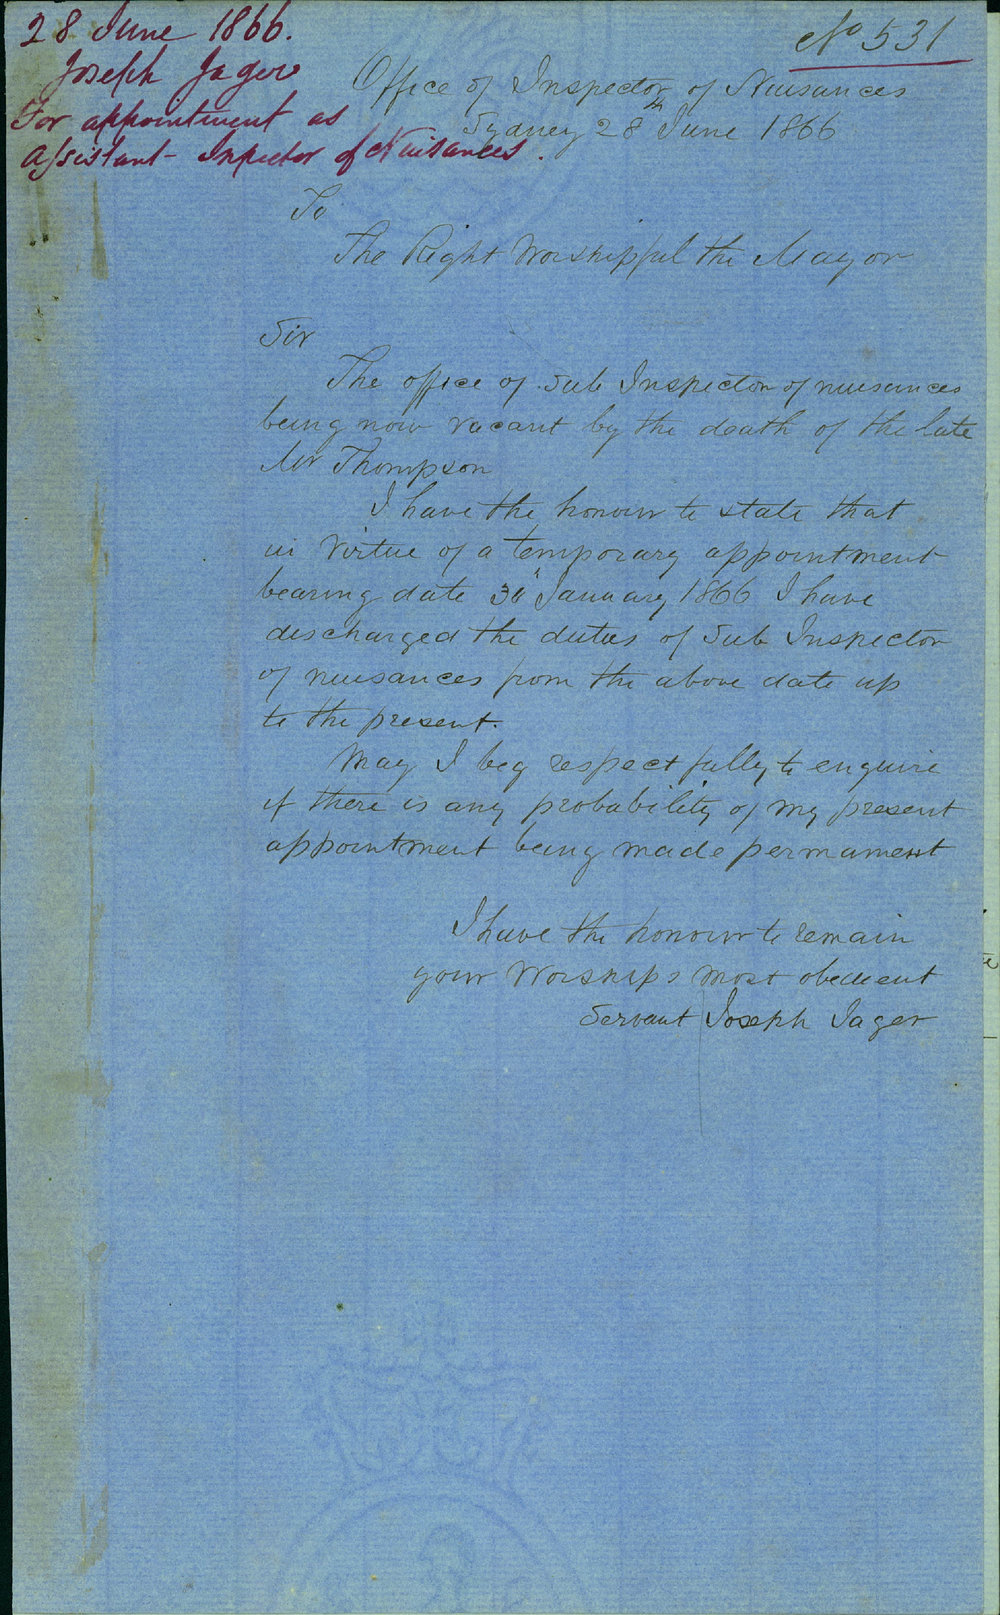 28 June 1866.
Joseph Jager
For appointment as
Assistant- Inspector of Nuisances.
No 531
Office of Inspector of Nuisances
Sydney 28th June 1866
To
The Right Worshipful the Mayor
Sir
The office of Sub Inspector of nuisances
being now vacant by the death of the late
Mr Thompson
I have the honour to state that
in virtue of a temporary appointment
bearing date 30 January 1866 I have
discharged the duties of Sub Inspector
of nuisances from the above date up
to the present.
May I beg respectfully to enquire
if there is any probability of my present
appointment being made permament
I have the honour to remain
your Worships most obedient
Servant Joseph Jager